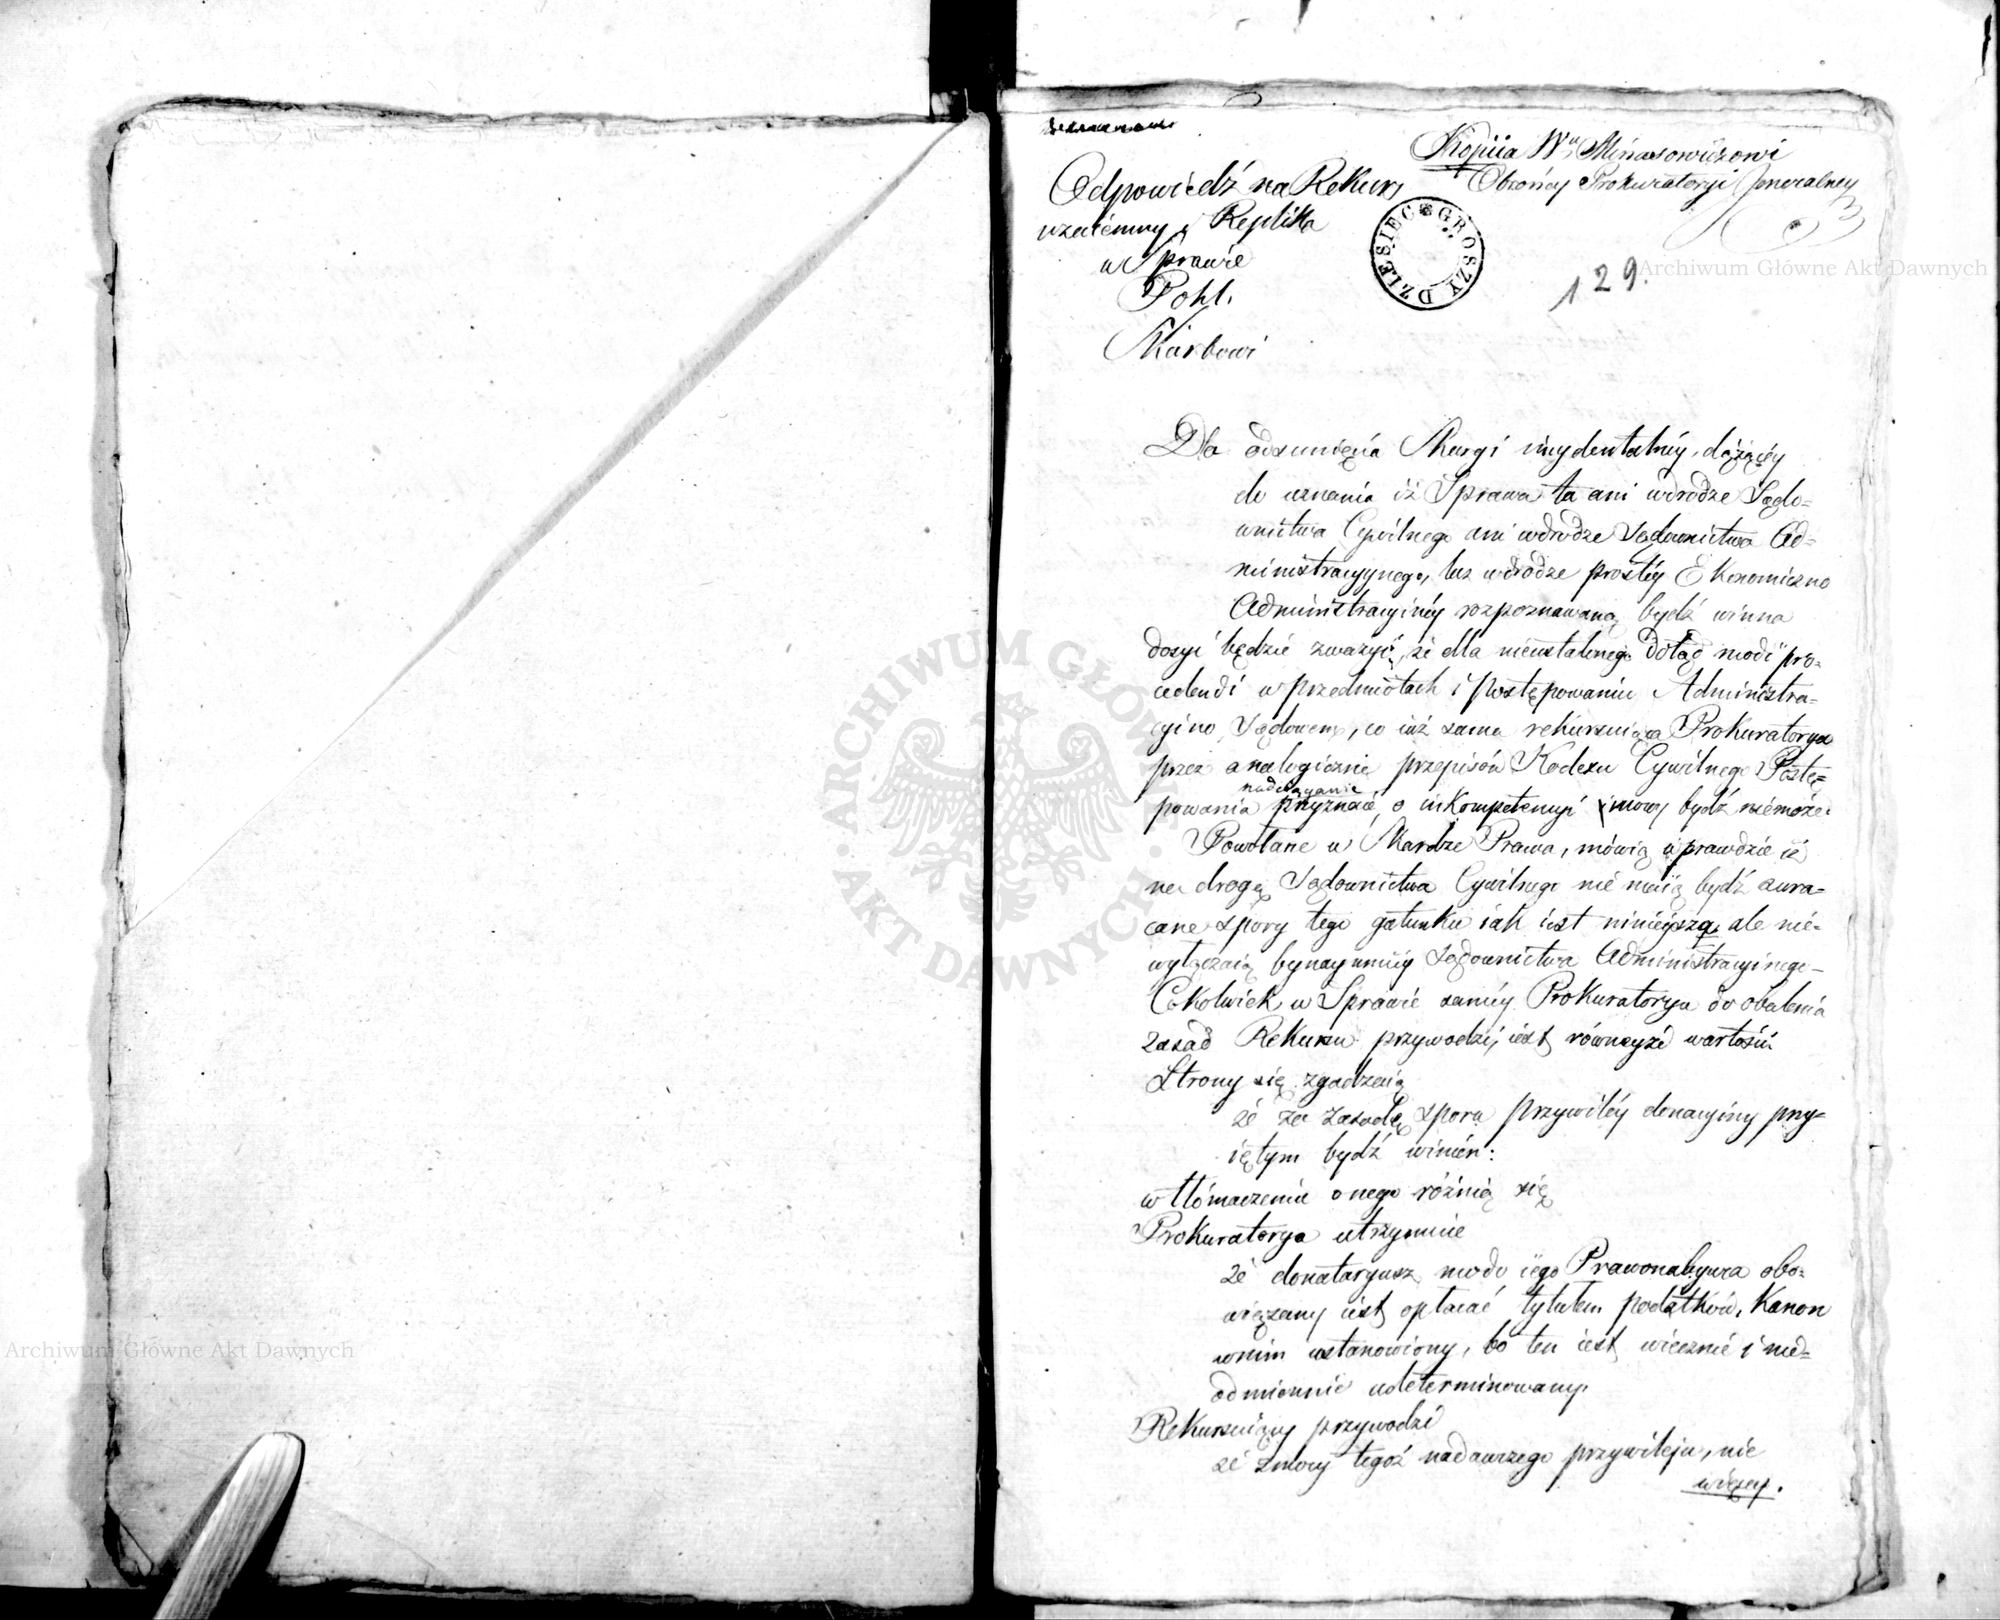 Kopiia Wu Minasowiczowi
Obrońcy Prokuratoryi Jeneralney
Odpowiedź na Rekurs
wzaiemny i Replika
w Sprawie
Pohl.
Skarbowi
DZIESIEC GROSZY
129.
Dla odsunięcia Skargi incydentalnéy, dążącéy
do uznania iż Sprawa ta ani wdrodze Sądo-
wnictwa Cywilnego ani wdrodze Sądownictwa Ad-
ministracyynego, lecz wdrodze prostéy Ekonomiczno
Administracyinéy rozpoznawaną bydź winna
dosyć będzie zważyć, że dla nieustalonego dotąd modi pro-
cedendi w przedmiotach i Postępowaniu Administra-
cyino Sądowem, co iuż sama rekursuiąca Prokuratorya
przez analogicznie przepisów Kodexu Cywilnego Postę-
nadciąganie
powania przyznaie, o inkompetencyi mowy bydź niemoże.
Powołane w Skardze Prawa, mówią wprawdzie iż
na drogę Sądownictwa Cywilnego nie maią bydź zwra-
cane spory tego gatunku iak iest ninieyszy, ale nie-
wyłączaią bynaymniéy Sądownictwa Administracyinego-
Cokolwiek w Sprawie saméy Prokuratorya do obalenia
zasad Rekursu przywodzi, iest równeyże wartości.
Strony się zgadzaią
że za zasadę sporu Przywiléy donacyiny przy-
iętym bydź winien:
w tłómaczeniu onego różnią się
Prokuratorya utrzymuie
że donataryusz, modo iego Prawonabywca obo-
wiązany iest opłacać tytułem podatków, Kanon
wnim ustanowiony, bo ten iest wiecznie i nie-
odmiennie udeterminowany.
Rekursuiący przywodzi
że zmocy tegoż nadawczego przywileju, nie
więcey.
Archiwum Główne Akt Dawnych
Archiwum Główne Akt Dawnych
ARCHIWUM GŁÓWNE AKT DAWNYCH